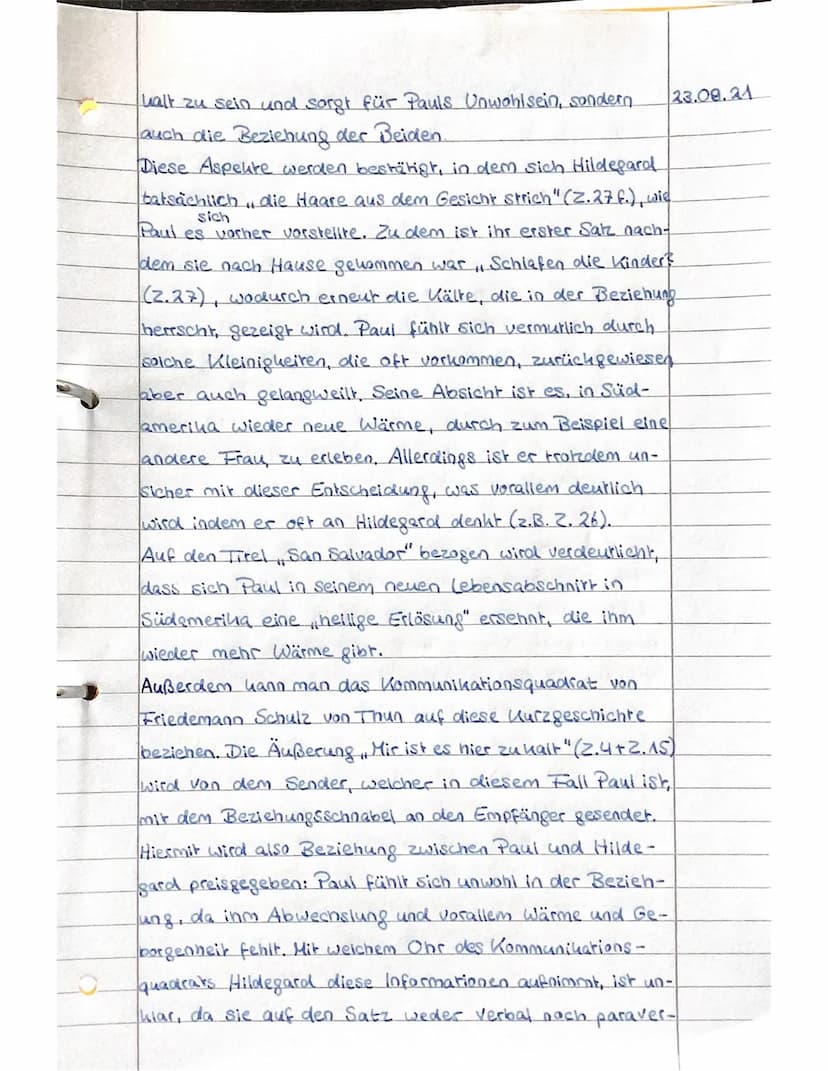 kalt zu sein und sorgt für Pauls Unwohlsein, sondern 23.08.21
auch die Beziehung der Beiden.
Diese Aspekte werden bestätigt, in dem sich Hildegard
tatsächlich „die Haare aus dem Gesicht strich" (Z.27f.), wie
sich
Paul es vorher vorstellte. Zu dem ist ihr erster Satz nach-
dem sie nach Hause gekommen war „Schlafen die Kinder?"
(Z.27), wodurch erneut die Kälte, die in der Beziehung
herrscht, gezeigt wird. Paul fühlt sich vermutlich durch
solche Kleinigkeiten, die oft vorkommen, zurückgewiesen
aber auch gelangweilt. Seine Absicht ist es, in Süd-
amerika wieder neue Wärme, durch zum Beispiel eine
andere Frau, zu erleben. Allerdings ist er trotzdem un-
sicher mit dieser Entscheidung, was vorallem deutlich
wird indem er oft an Hildegard denkt (z.B. Z. 26).
Auf den Titel „San Salvador" bezogen wird verdeutlicht,
dass sich Paul in seinem neuen Lebensabschnitt in
Südamerika eine „heilige Erlösung" ersehnt, die ihm
wieder mehr Wärme gibt.
Außerdem kann man das Kommunikationsquadrat von
Friedemann Schulz von Thun auf diese Kurzgeschichte
beziehen. Die Äußerung „Mir ist es hier zu kalt" (Z.4+Z.15)
wird von dem Sender, welcher in diesem Fall Paul ist,
mit dem Beziehungsschnabel an den Empfänger gesendet.
Hiermit wird also Beziehung zwischen Paul und Hilde-
gard preisgegeben: Paul fühlt sich unwohl in der Bezieh-
ung, da ihm Abwechslung und vorallem Wärme und Ge-
borgenheit fehlt. Mit welchem Ohr des Kommunikations-
quadrats Hildegard diese Informationen aufnimmt, ist un-
klar, da sie auf den Satz weder verbal noch paraver-